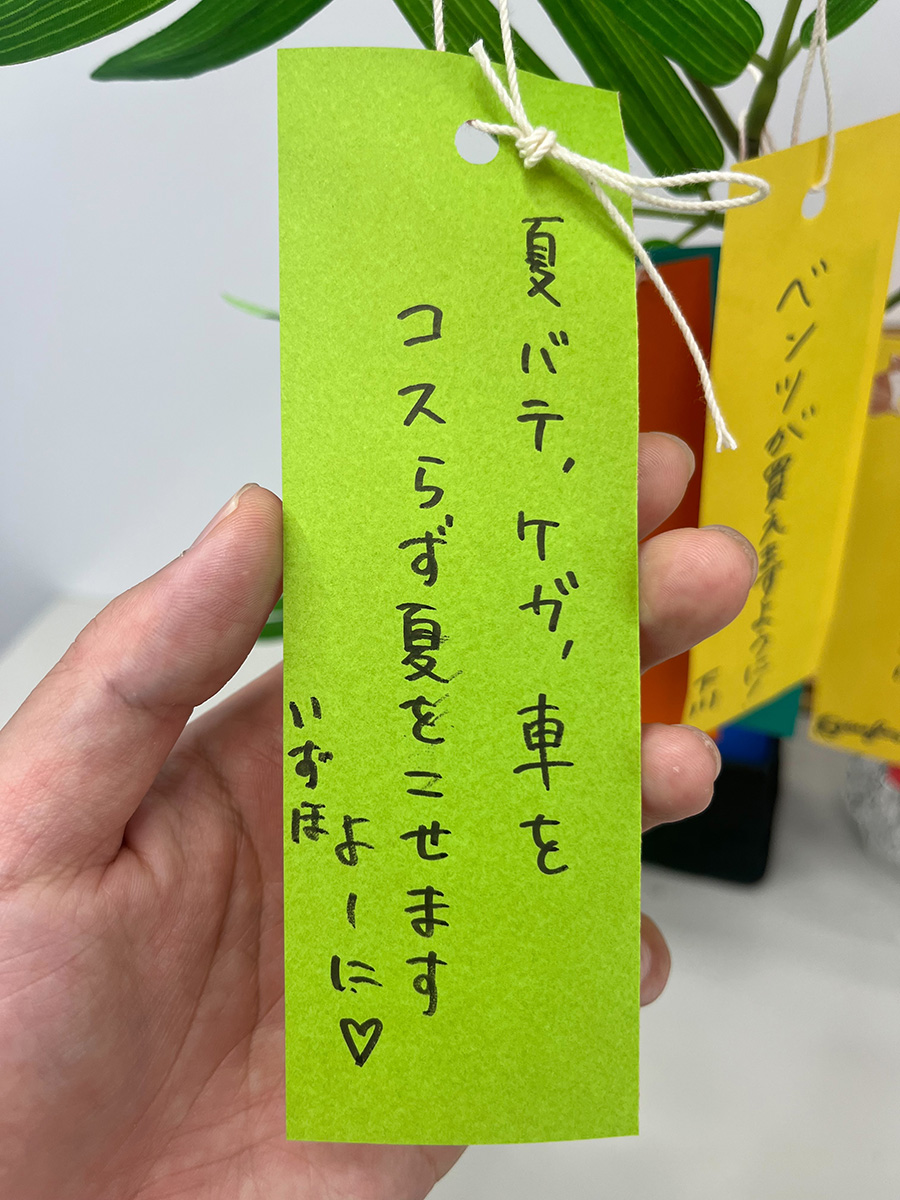 夏バテ,ケガ,車を
コスらず夏をこせます
よーに♡
いずほ
ベンツが買えますように!
下川